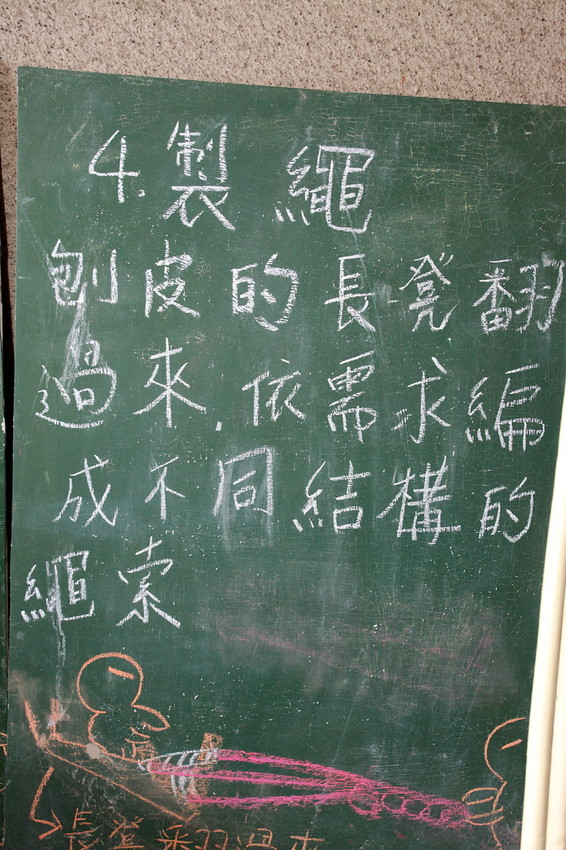 4.製繩
刨皮的長凳翻
過來,依需求編
成不同結構的
繩索
長凳翻過來